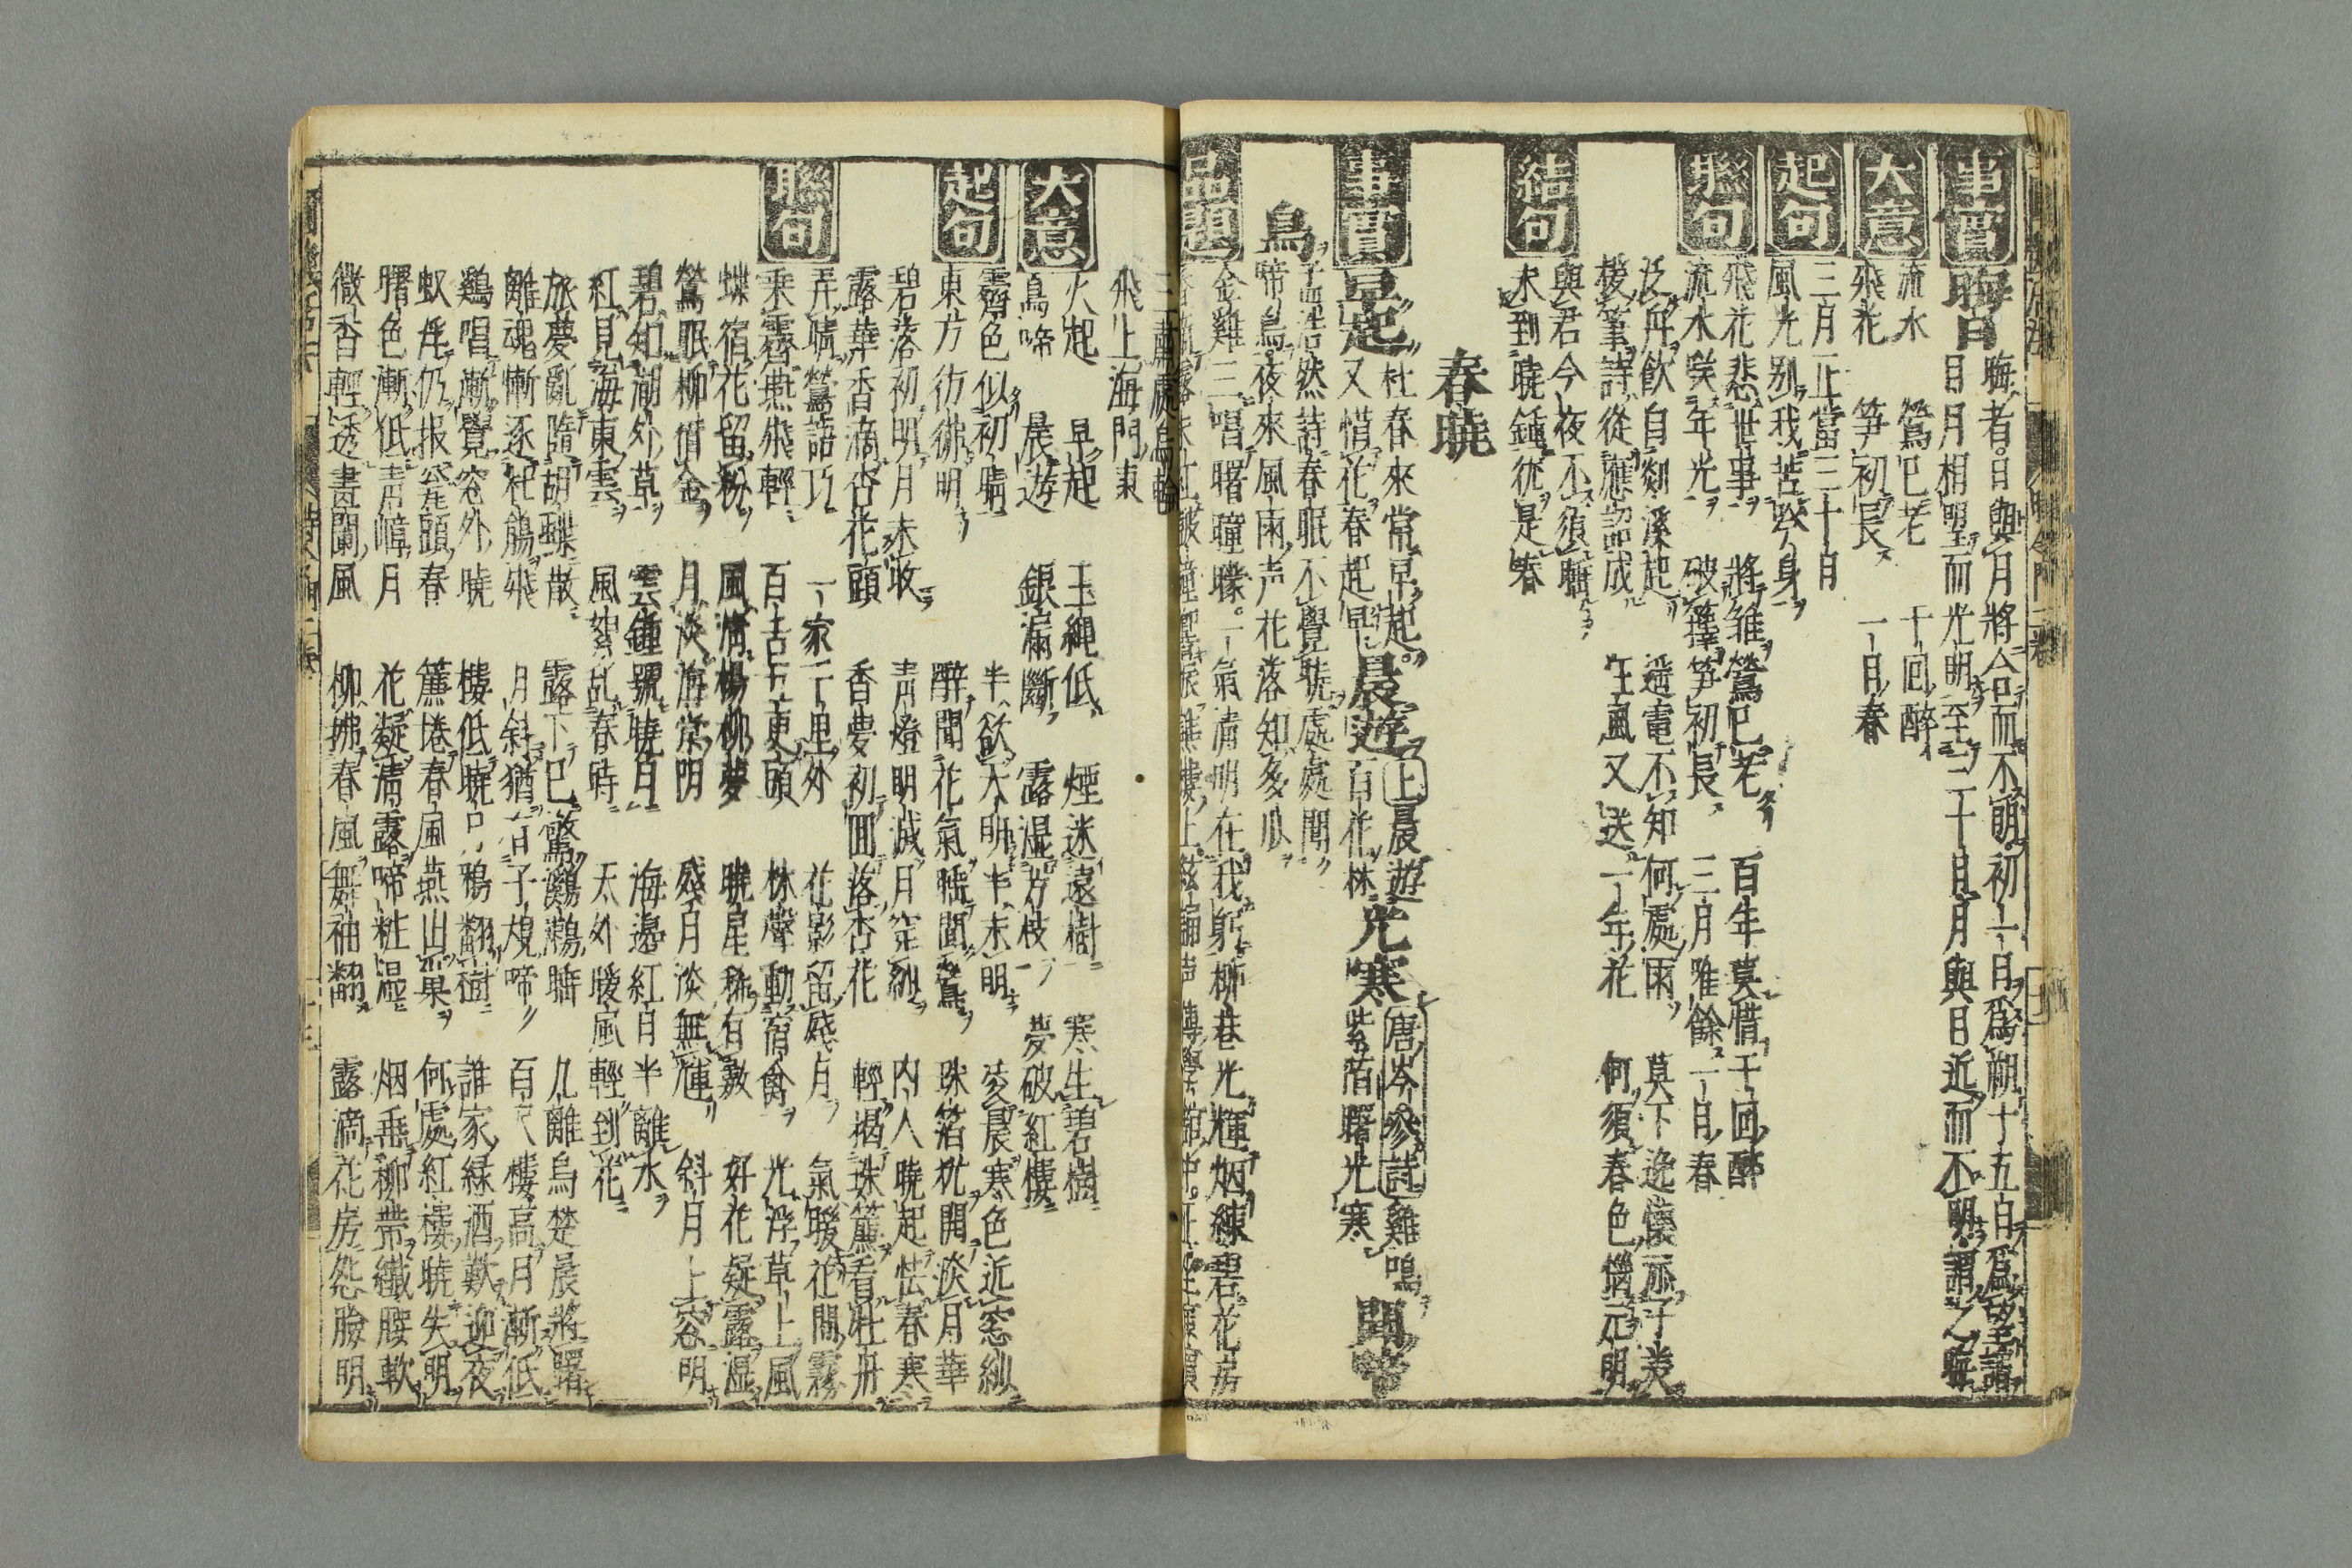 事實 晦日 晦者日與月將合而不萌初一日為朔十五日為望謂
日月相望而光明至三十日月與日近而不明謂之晦
大意 流水 鶯已老 十回醉
飛花 笋初長 一月春
起句 三月正當三十日
風光別我苦吟身
聯句 飛花悲世事 將雛鶯已老 百年莫惜千回醉
流水嘆年光 破籜笋初長 三月唯餘一月春
泛舟飲自剡溪起 遥電不知何處雨
援筆詩從應詔成 狂風又送一年花 何須春色惱元明
結句 與君今夜不須睡
未到曉鐘猶是春
春曉
事實 早起 杜春來常早起 晨遊 上晨遊 光寒 唐岑參詩雞鳴
又惜花春起早 百花林 紫陌曙光寒
孟浩然詩春眠不覺曉處處聞
鳥 啼鳥夜來風雨声花落知多少
品題 金雞三唱曙曈曨一氣清明在我躬柳巷光輝烟練碧花房
飛上海門東
大意 火起 早起 玉繩低 煙迷遠樹 寒生碧樹
鳥啼 晨遊 銀漏斷 露湿方枝 夢破紅樓
起句 霽色似初晴 半欲天明半未明 凌晨寒色近窓紗
東方彷彿明 醉聞花氣睡聞鶯 珠箔枕開淡月華
碧落初明月未收 青燈明滅月窺紗 内人曉起怯春寒
露華香滴杏花頭 香夢初回落杏花 輕揭珠簾看牡丹
聯句 弄晴鶯語巧 一家一里外 花影留殘月 氣暖花間霧
乘霽燕飛輕 百舌五更頭 林聲動宿禽 光浮草上風
蝶宿花留粉 風情楊柳夢 曉星稀有數 好花凝露湿
鶯眠柳借金 月淡海棠明 殘月淡無輝 斜月上窓明
碧知湖外草 雲鐘號曉月 海邊紅日半離水
紅見海東雲 風絮乱春時 天外暖風輕到花
旅夢亂隨胡蝶散 露下已驚鸂鶒睡 瓜離烏楚晨將曙
離魂慚逐杜鵑飛 月斜猶有子規啼 百尺樓高月漸低
鷄唱漸覺窓外曉 樓低曉戶鴉翻樹 誰家緑酒歡迎夜
蚁舟仍报瓮頭春 簾捲春風燕出巢 何處紅樓曉失明
曙色漸低青幛月 花凝清露啼粧湿 烟垂柳帶纖腰軟
微香輕透畫闌風 柳拂春風舞袖翻 露滴花房怨臉明